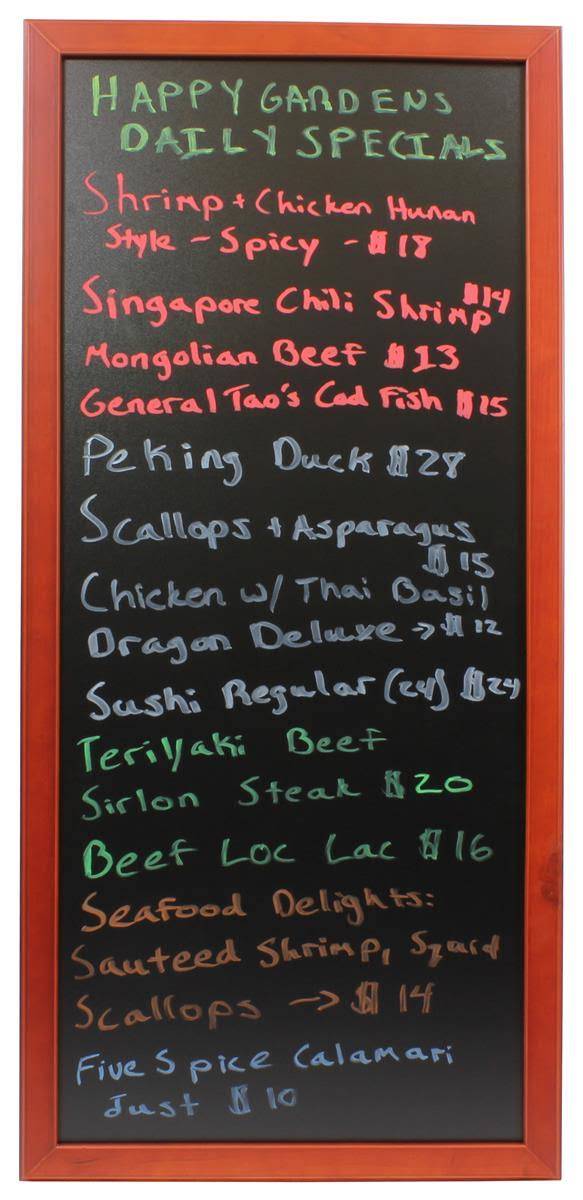 HAPPY GARDENS
DAILY SPECIALS
Shrimp + Chicken Hunan
Style - Spicy - $18
Singapore Chili Shrimp $14
Mongolian Beef $13
General Tao's Cod Fish $15
Peking Duck $28
Scallops + Asparagus
$15
Chicken w/ Thai Basil
Dragon Deluxe → $12
Sushi Regular (24) $24
Teriyaki Beef
Sirlon Steak $20
Beef Loc Lac $16
Seafood Delights:
Sauteed Shrimp,
Scallops → $14
Five Spice Calamari
Just $10